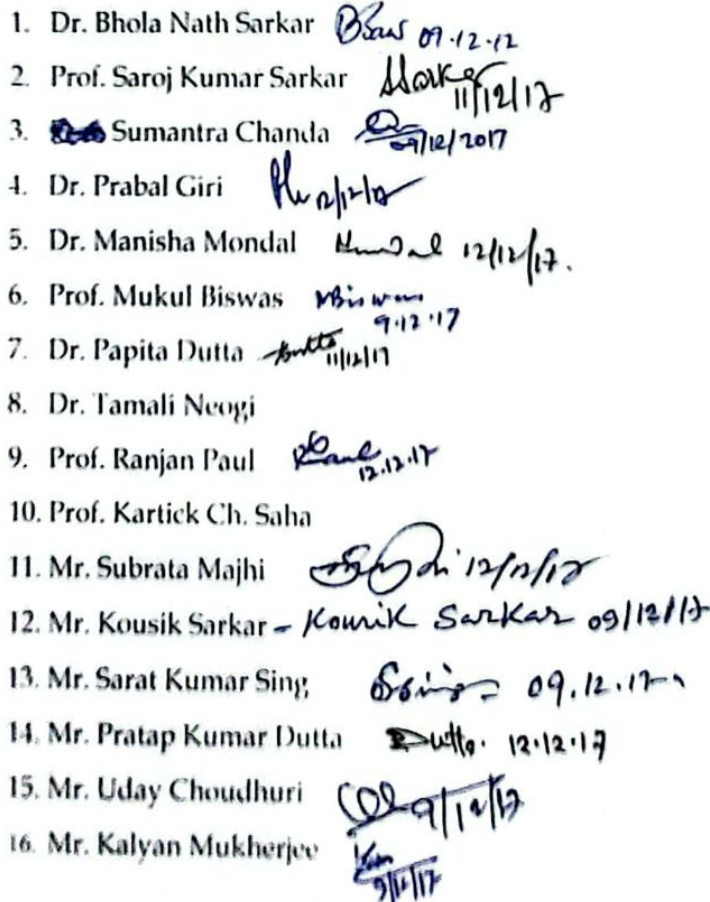 1. Dr. Bhola Nath Sarkar 09.12.12
2. Prof. Saroj Kumar Sarkar Sarkar 11/12/17
3. Sumantra Chanda 09/12/2017
4. Dr. Prabal Giri 12/12/17
5. Dr. Manisha Mondal Mondal 12/12/17.
6. Prof. Mukul Biswas MBiswas 9.12.17
7. Dr. Papita Dutta Dutta 11/12/17
8. Dr. Tamali Neogi
9. Prof. Ranjan Paul RPaul 12.12.17
10. Prof. Kartick Ch. Saha
11. Mr. Subrata Majhi 12/12/17
12. Mr. Kousik Sarkar - Kousik Sarkar 09/12/17
13. Mr. Sarat Kumar Sing 09.12.17
14. Mr. Pratap Kumar Dutta Dutta. 12.12.17
15. Mr. Uday Choudhuri 9/12/17
16. Mr. Kalyan Mukherjee 9/12/17